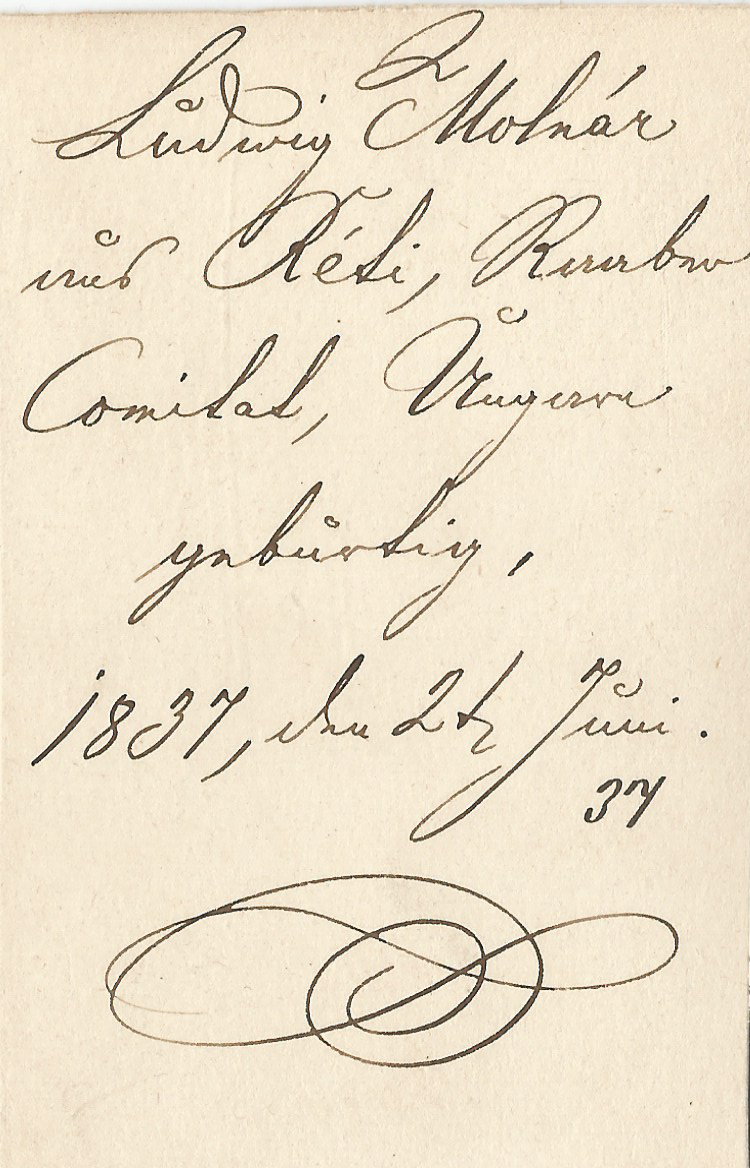 Ludwig Molnár
aus Réti, Raaber
Comitat, Ungarn
gebürtig,
1837, den 2t Juni.
37